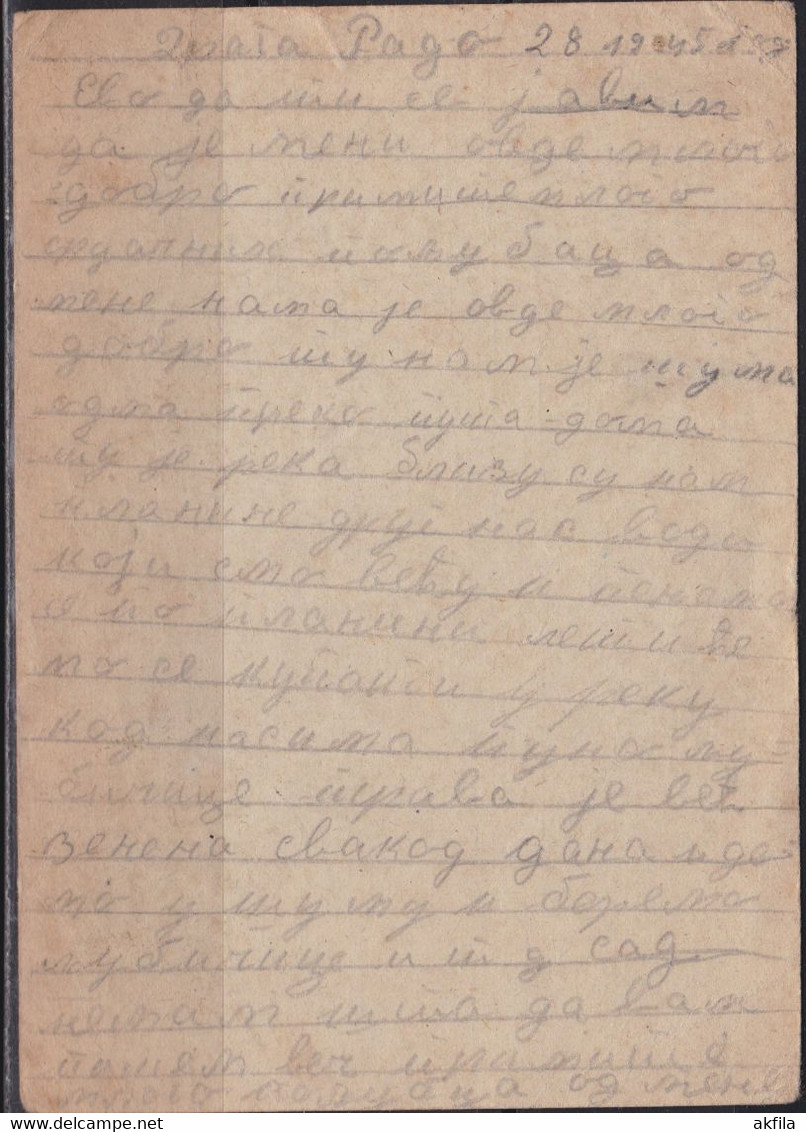 Злата Радо 28 1945
Ево да ти се јавим
да је мени овде млого
добро примите млого
срдачних пољубаца од
мене нама је овде млого
добро ту нам је шума
одма преко пута дома
ту је река близу су нам
планине друг нас води
који смо већи и пењемо
се по планини лети ће
мо се купати у реку
код нас има пуно љу=
бичице трава је већ
зенена сваког дана иде
мо у шуму и беремо
љубичице и т д сад
немам шта да вам
пишем већ примите
млого пољубаца од мене
akfila